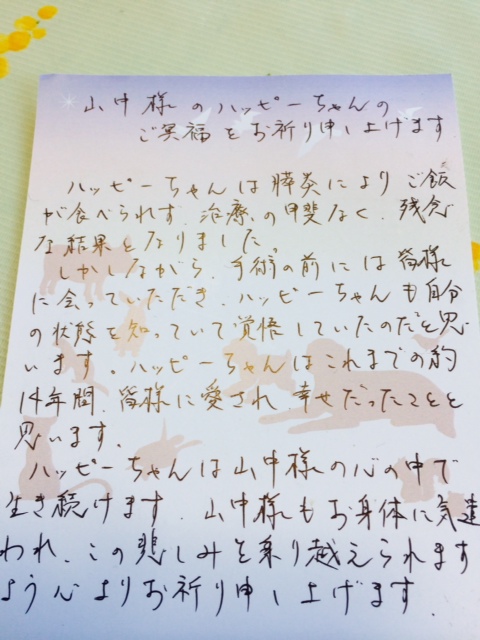 山中様のハッピーちゃんの
ご冥福をお祈り申し上げます
ハッピーちゃんは膵炎によりご飯
が食べられず、治療の甲斐なく、残念
な結果となりました。
しかしながら、手術の前には皆様
に会っていただき、ハッピーちゃんも自分
の状態を知っていて覚悟していたのだと思
います。ハッピーちゃんはこれまでの約
14年間、皆様に愛され、幸せだったことと
思います。
ハッピーちゃんは山中様の心の中で
生き続けます。山中様もお身体に気遣
われ、この悲しみを乗り越えられます
よう心よりお祈り申し上げます。